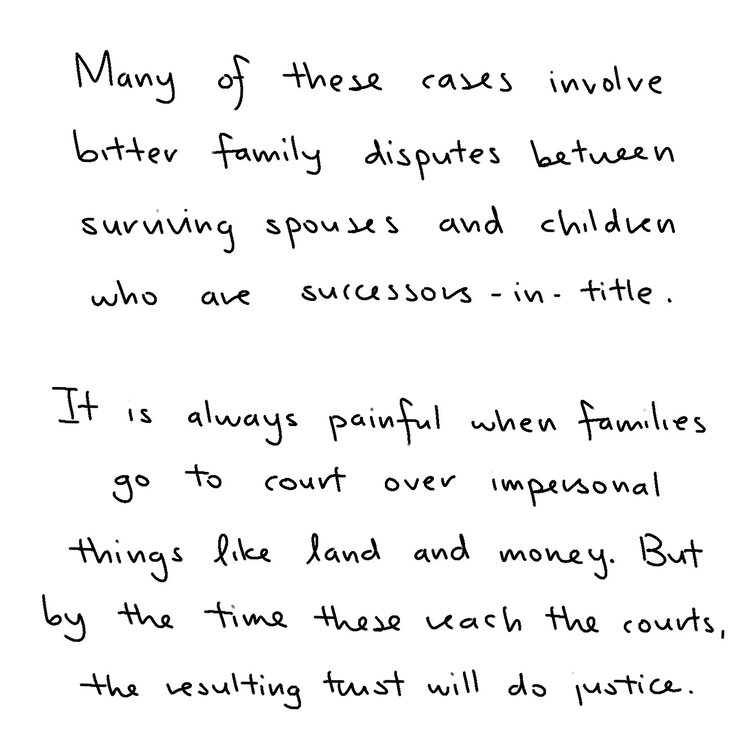 Many of these cases involve
bitter family disputes between
surviving spouses and children
who are successors-in-title.
It is always painful when families
go to court over impersonal
things like land and money. But
by the time these reach the courts,
the resulting trust will do justice.